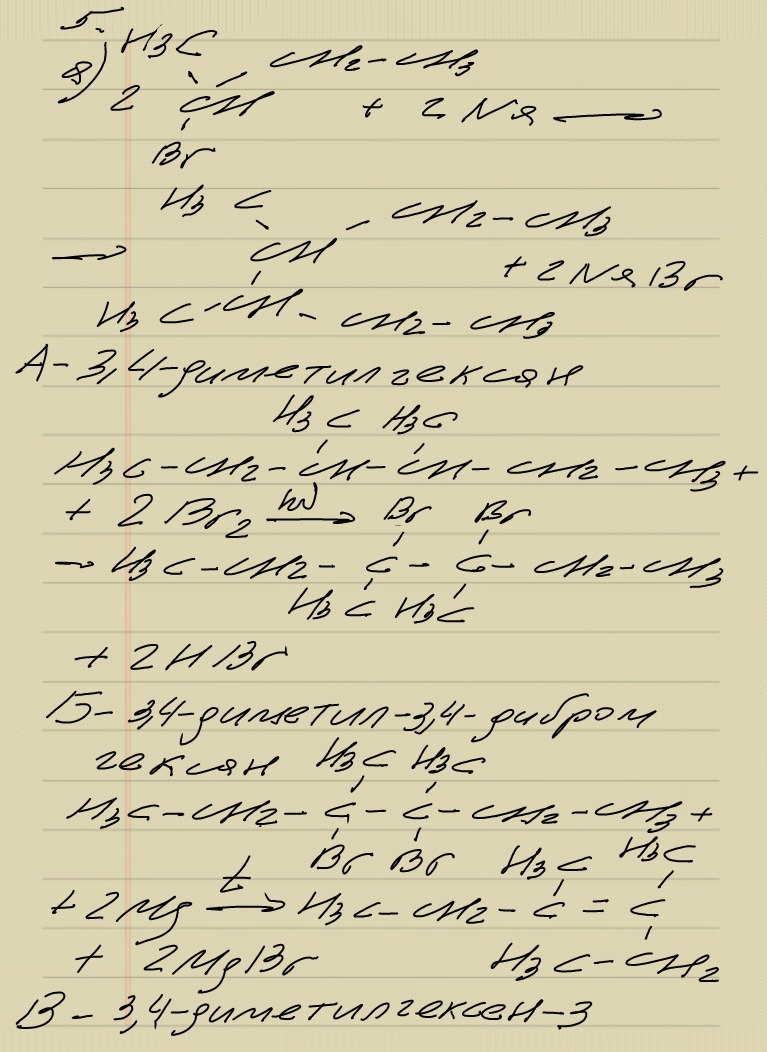 5.
8) H3C CH2-CH3
2 CH + 2 Na →
Br
H3C CH2-CH3
→ CH + 2 NaBr
H3C-CH-CH2-CH3
А- 3,4-диметилгексан
H3C H3C
H3C-CH2-CH-CH-CH2-CH3+
+ 2 Br2 hν → Br Br
→ H3C-CH2-C-C-CH2-CH3
H3C H3C
+ 2HBr
Б- 3,4-диметил-3,4-дибром
гексан H3C H3C
H3C-CH2-C-C-CH2-CH3+
Br Br H3C H3C
+2Mg t → H3C-CH2-C=C
+ 2MgBr H3C-CH2
В- 3,4-диметилгексен-3